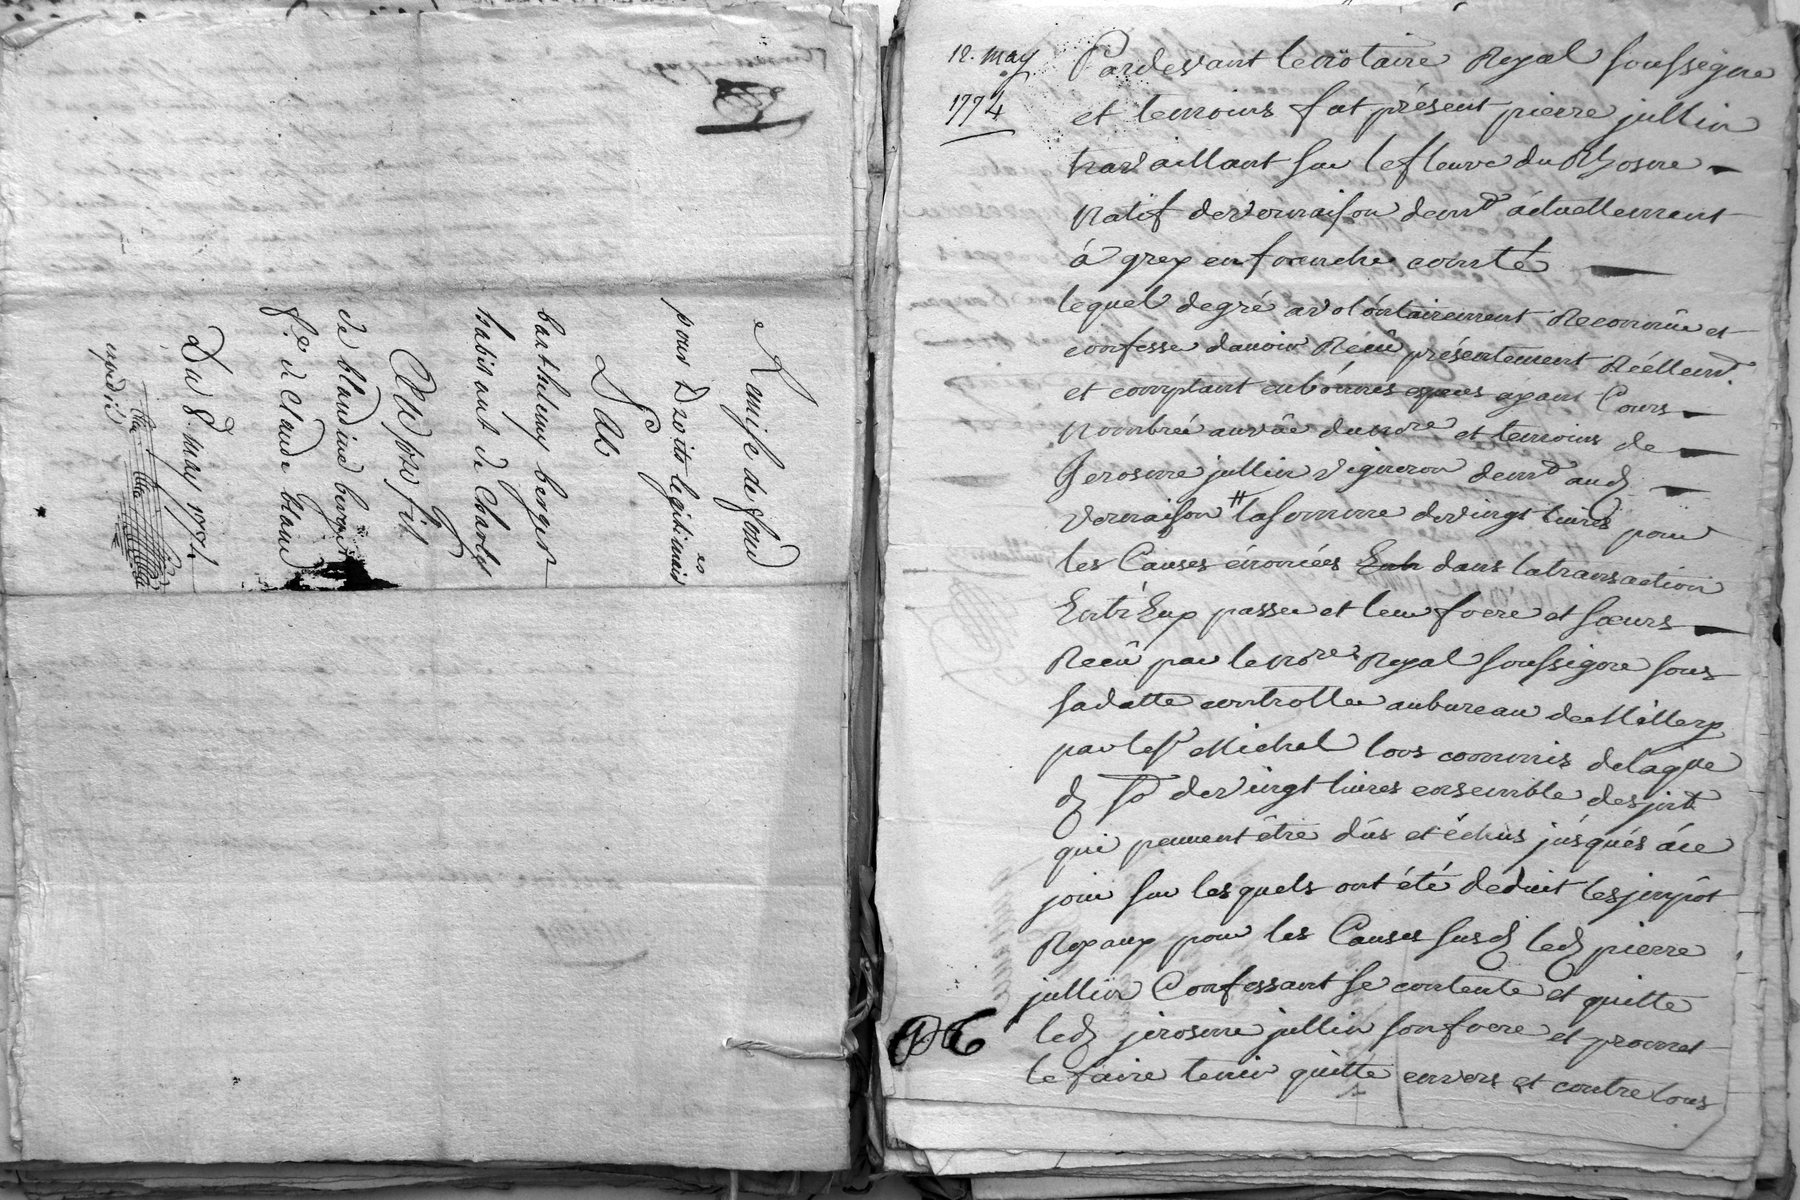 Remise de fond
pour Droits legitimaires
Sr
barthelemy berger
habitant de Charly
Au profit
de blandine berger
fe de Claude blanc
Du 8 may 1774
expédié
12. may
1774
Pardevant le nôtaire Royal soussigné
et temoins fut présent pierre jullin
travaillant sur le fleuve du Rhosne
natif de vernaison demt actuellement
á grex en franche comté
lequel de gré a volontairement Reconnû et
confesse d'avoir Réçû présentement Réellemt
et comptant en bonnes espèces ayant Cours
nombrée au vûe du nore et temoins de
Jerosme jullin vigneron demt aud
vernaison # la somme de vingt livres pour
les Causes énoncées Entr dans la transaction
Entr'Eux passée et leur frere et sœurs
Recûe par le nore Royal soussigné sous
sa datte controllée au bureau de Millery
par le sr Michel Lors commis de laquelle
d se de vingt livres ensemble des jntt
qui peuvent être dûs et échus jusqués á ce
jour sur lesquels ont été deduit les jmpôt
Royaux pour les Causes susd led pierre
jullin Confessant se contente et quitte
led jerosme jullin son frere et promet
le faire tenir quitte envers et contre tous
96